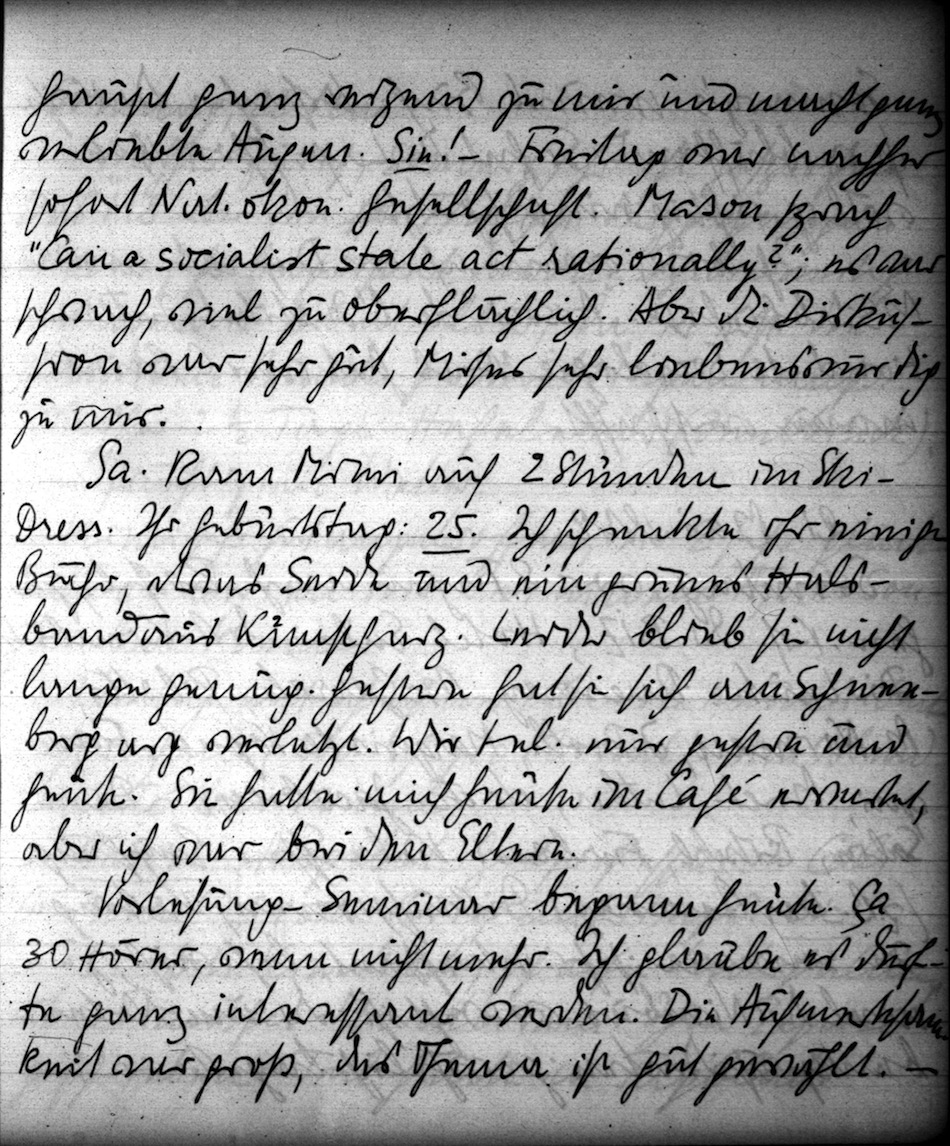 haupt ganz reizend zu mir und macht ganz
verliebte Augen. Sie! – Freitag war nachher
sofort Nat. ökon. Gesellschaft. Mason sprach
"Can a socialist state act rationally?"; es war
schwach, viel zu oberflächlich. Aber die Diskus-
sion war sehr gut, Mises sehr liebenswürdig
zu mir.
Sa. kam Mimi auf 2 Stunden im Ski-
Dress. Ihr Geburtstag: 25. Ich schenkte ihr einige
Bücher, etwas Seide und ein grünes Hals-
band aus Leider blieb sie nicht
lange genug. Gestern hat sie sich am Schnee-
berg arg verletzt. Wir tel. nur gestern und
heute. Sie hatte mich heute im Café erwartet,
aber ich war bei den Eltern.
Vorlesung – Seminar begann heute. Ça
30 Hörer, wenn nicht mehr. Ich glaube es dürf-
te ganz interessant werden. Die Aufmerksam-
keit war groß, das Thema ist gut gewählt. –